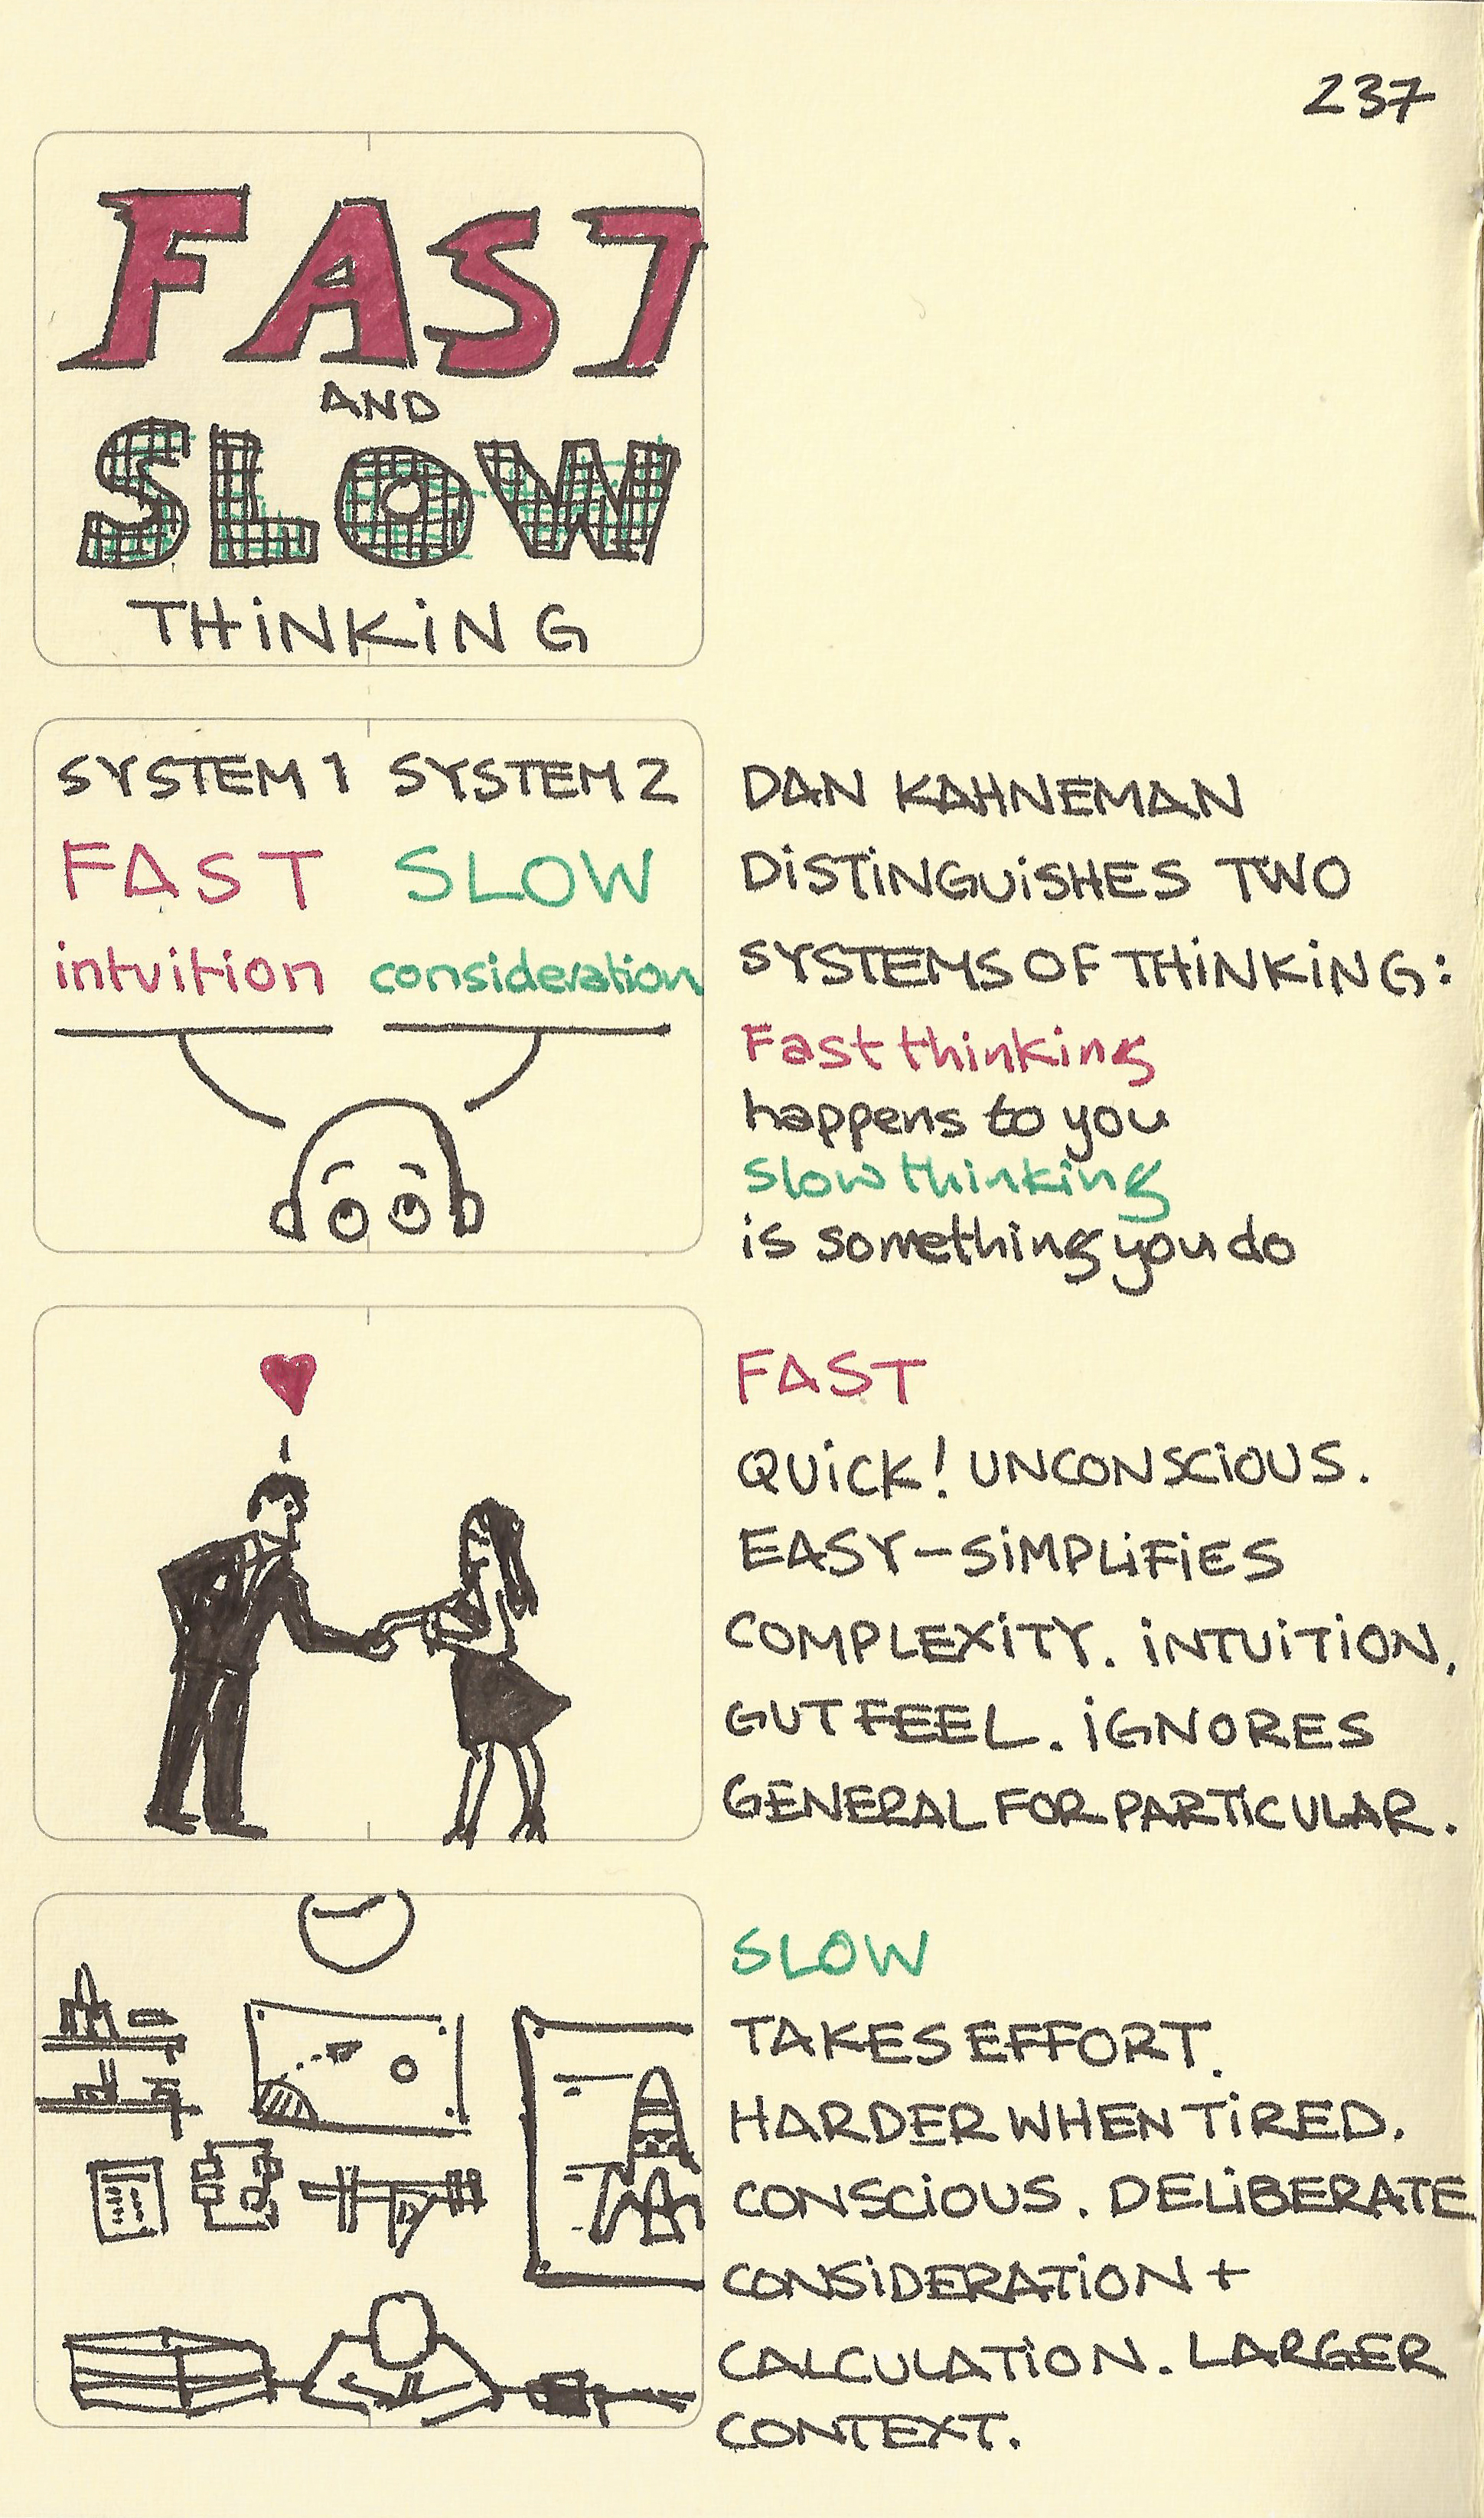 237
FAST
AND
SLOW
THiNKiNG
SYSTEM 1 SYSTEM 2
FAST SLOW
intuition consideration
DAN KAHNEMAN
DiSTiNGUiSHES TWO
SYSTEMS OF THiNKiNG:
Fast thinking
happens to you
slow thinking
is something you do
FAST
QUiCK! UNCONSCiOUS.
EASY-SiMPLiFiES
COMPLEXiTY. iNTUiTiON.
GUT FEEL. iGNORES
GENERAL FOR PARTiCULAR.
SLOW
TAKES EFFORT.
HARDER WHEN TiRED.
CONSCiOUS. DELiBERATE
CONSiDERATiON +
CALCULATiON. LARGER
CONTEXT.